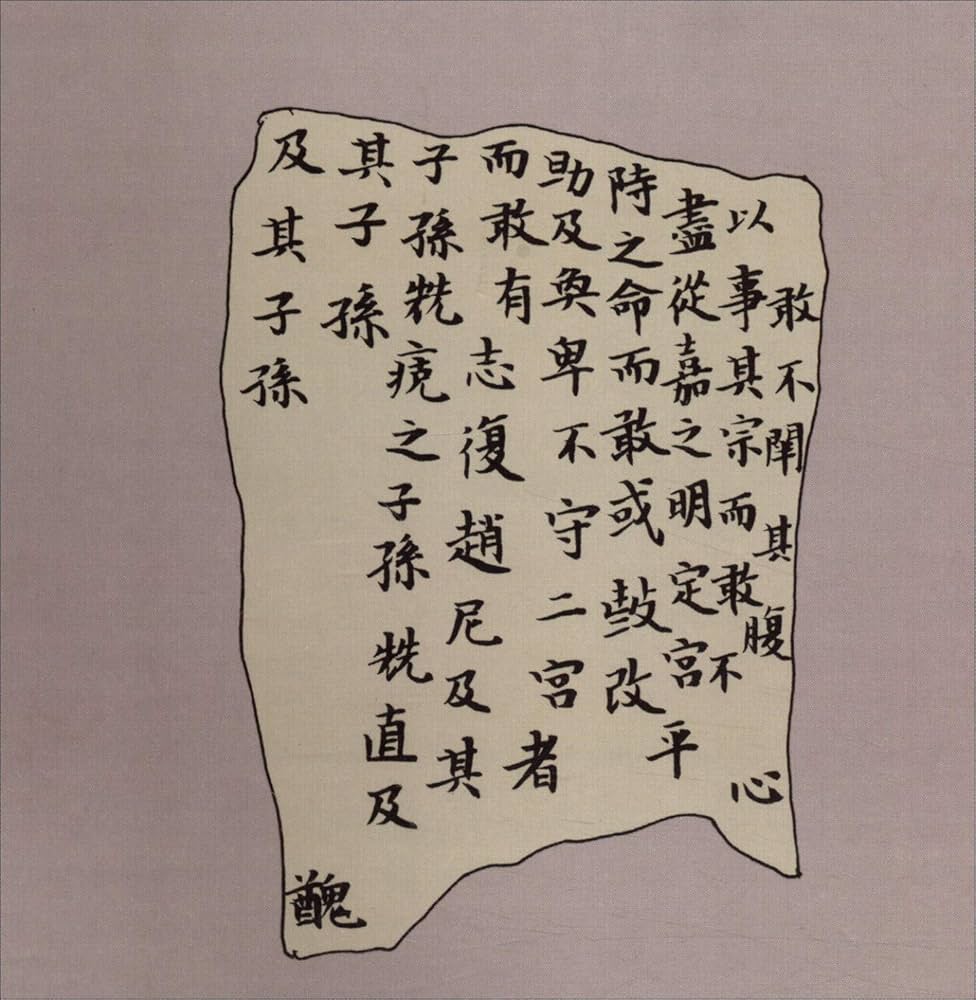 敢不其腹心
以事其宗而敢不
盡從嘉之明定宮平
之命而敢或改
助及奐卑不守二宮者
而敢有志復趙尼及其
子孫兟之子孫兟直及
其子孫醜
及其子孫